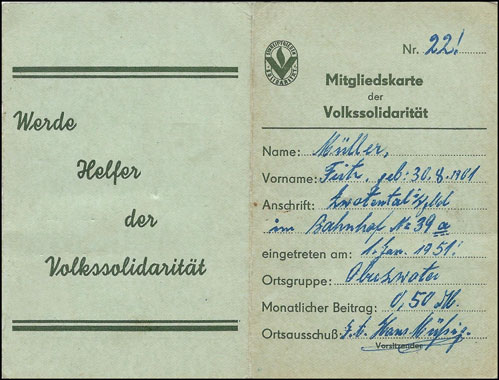 Werde
Helfer
der
Volkssolidarität
VOLKSSOLIDARITÄT
Nr. 22!
Mitgliedskarte
der
Volkssolidarität
Name: Müller,
Vorname: Fritz, geb: 30.8.1901
Anschrift: Zwotental
im Bahnhof No 39 a
eingetreten am: 1. Jan. 1951.
Ortsgruppe: Oberzwota
Monatlicher Beitrag: 0,50 DM.
Ortsausschuß: Hans
Vorsitzender